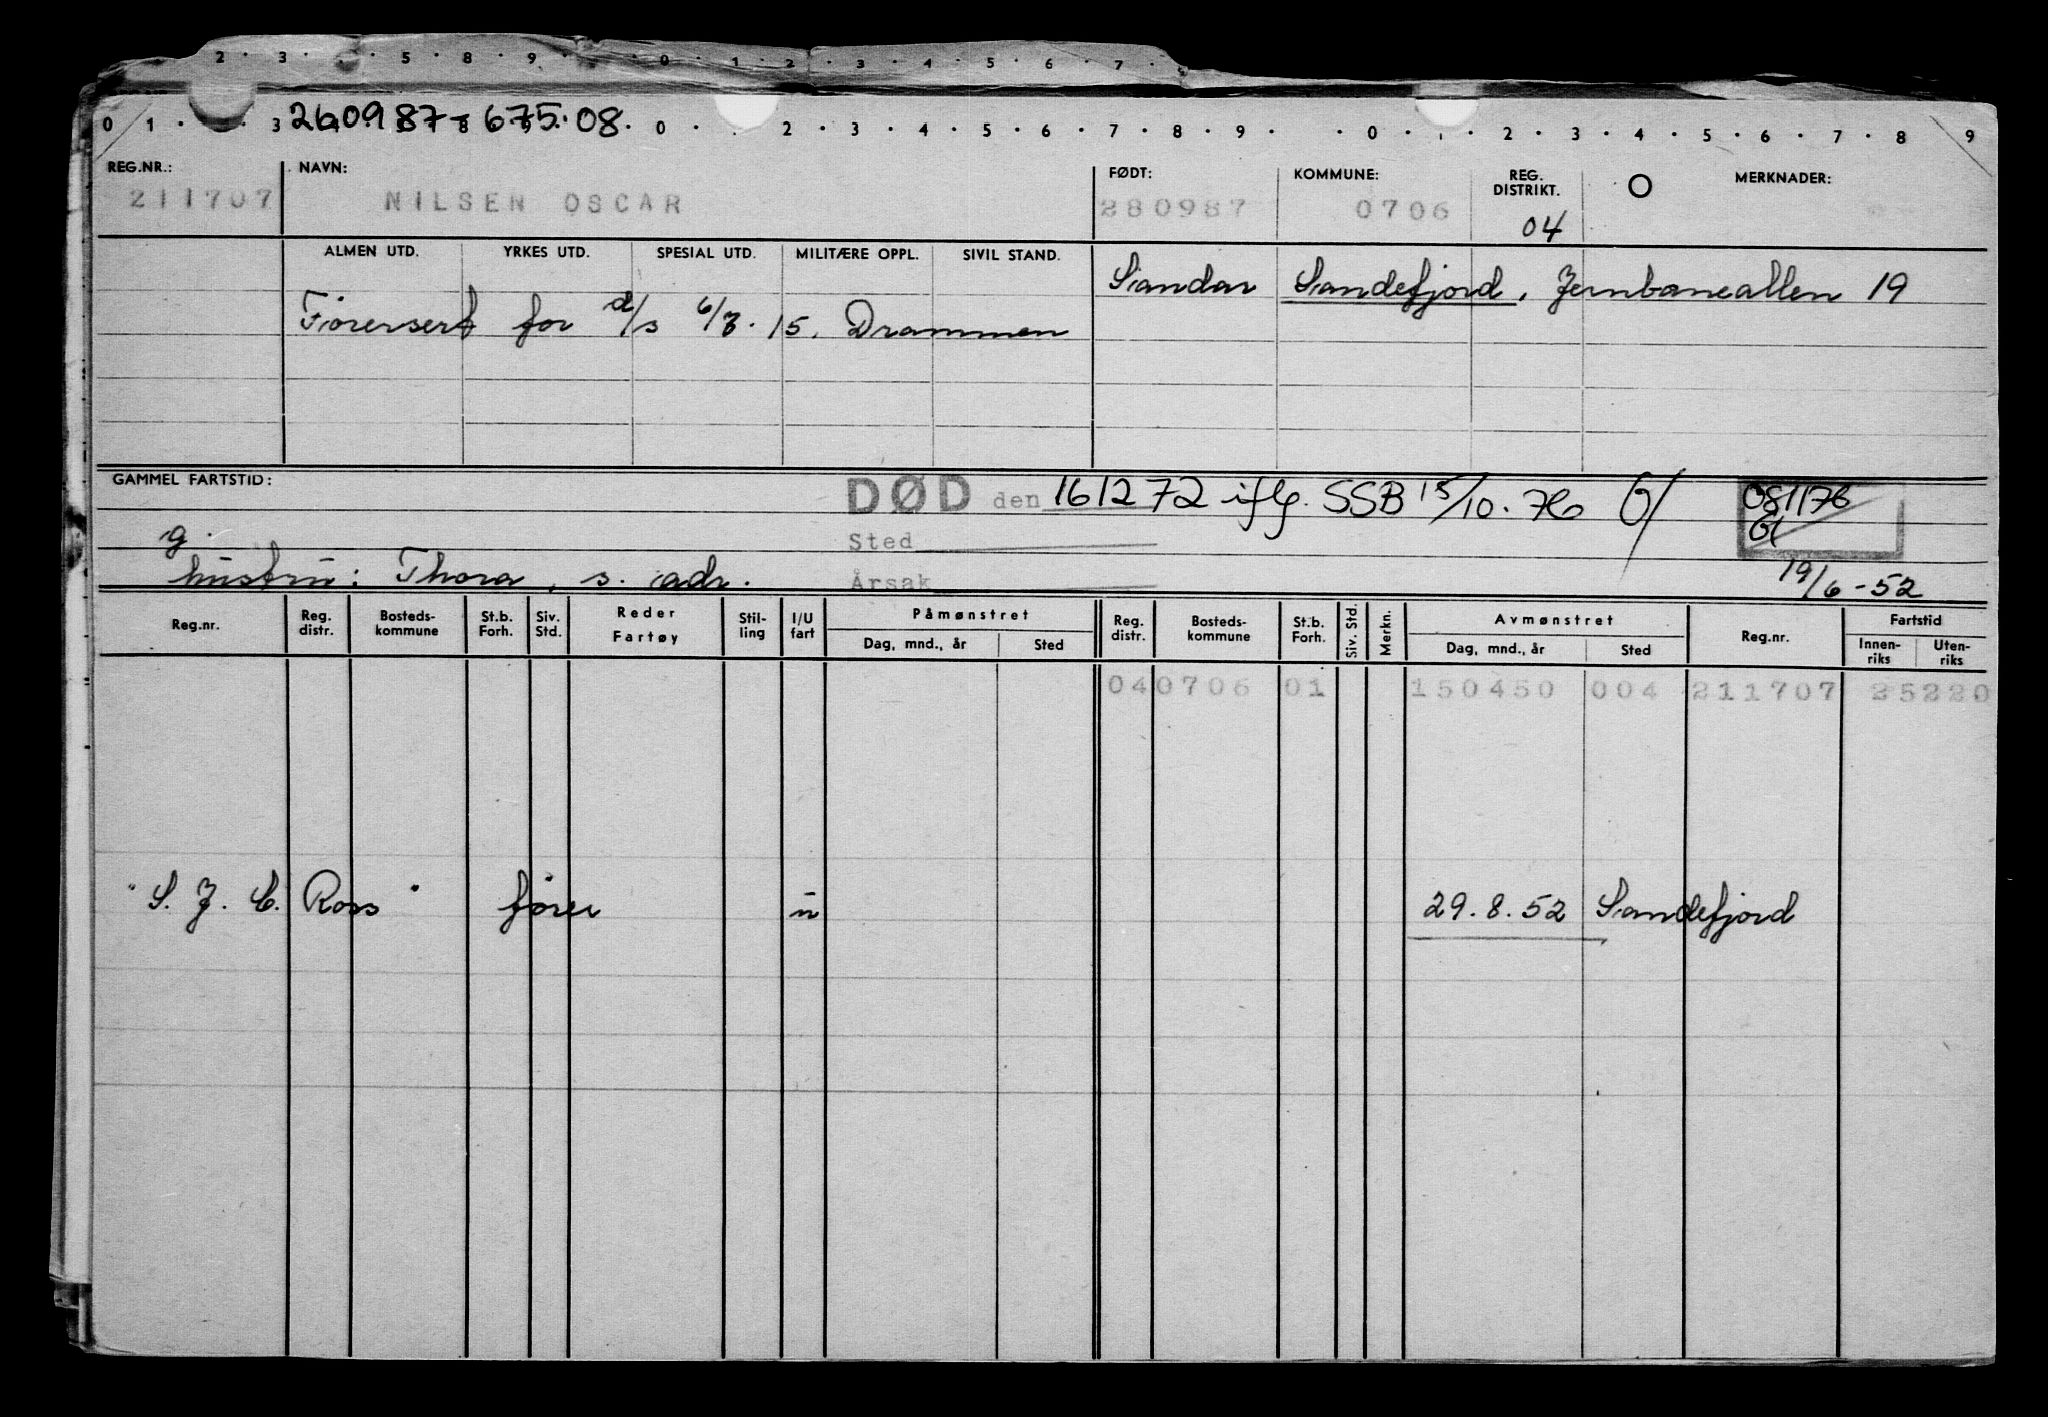 2 · 3 · · 5 · 8 · 9 · · 0 · 1 · 2 · 3 · 4 · 5 · 6 · 7 ·
260987-675.08.
0 1 · · 3 0 · · 2 · 3 · 4 · 5 · 6 · 7 · 8 · 9 · · 0 · 1 · 2 · 3 · 4 · 5 · 6 · 7 · 8 9
REG.NR.: NAVN: FØDT: KOMMUNE: REG. DISTRIKT. O MERKNADER:
211707 NILSEN OSCAR 280987 0706 04
ALMEN UTD. YRKES UTD. SPESIAL UTD. MILITÆRE OPPL. SIVIL STAND.
Sandar Sandefjord, Jernbanealleen 19
Førersert for d/s 6/7.15. Drammen
GAMMEL FARTSTID:
DØD den 161272 iflg. SSB 15/10.76 G/
081176
Gl
g.
Sted
hustru: Thora, s. adr.
Årsak
19/6-52
Reg.nr. Reg. distr. Bosteds- kommune St.b. Forh. Siv. Std. Reder Fartøy Stil- ling I/U fart Påmønstret Dag, mnd., år Sted Reg. distr. Bosteds- kommune St.b. Forh. Siv. Std. Merkn. Avmønstret Dag, mnd., år Sted Reg.nr. Fartstid Innen- riks Uten- riks
04 0706 01 150450 004 211707 25220
"S. J. C. Ross" fører u 29.8.52 Sandefjord